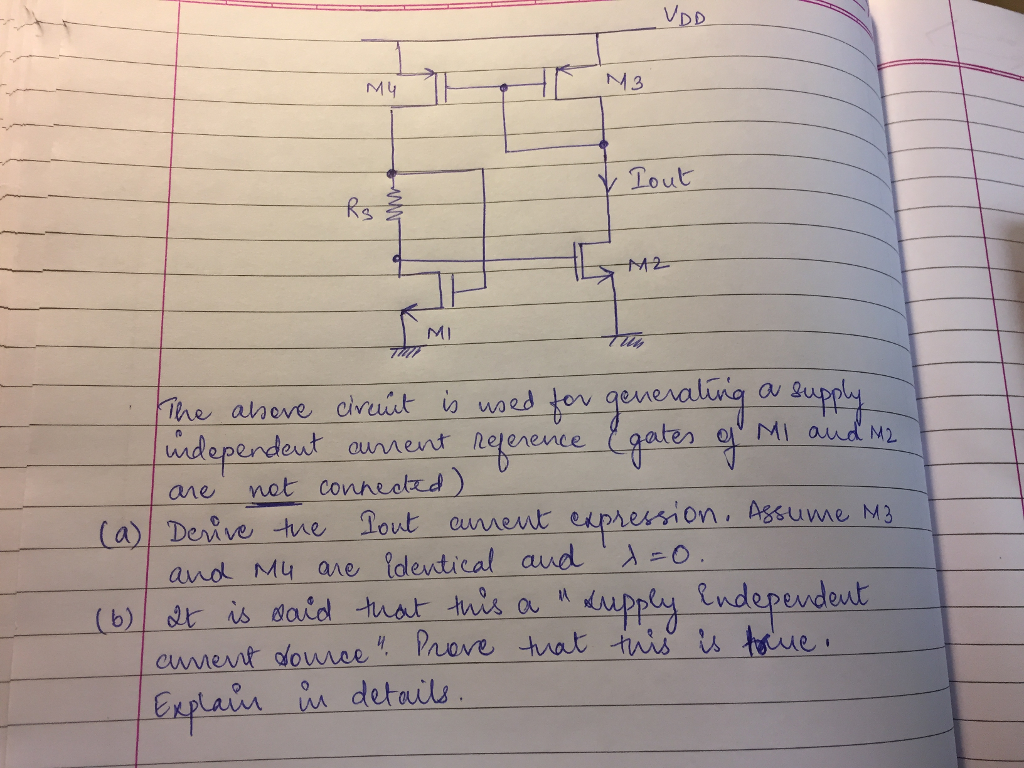 VDD
M4
M3
Iout
Rs
M2
M1
The above circuit is used for generating a supply
independent current reference (gates of M1 and M2
are not connected)
(a) Derive the Iout current expression. Assume M3
and M4 are identical and λ=0.
(b) It is said that this a "supply independent
current source". Prove that this is true.
Explain in details.